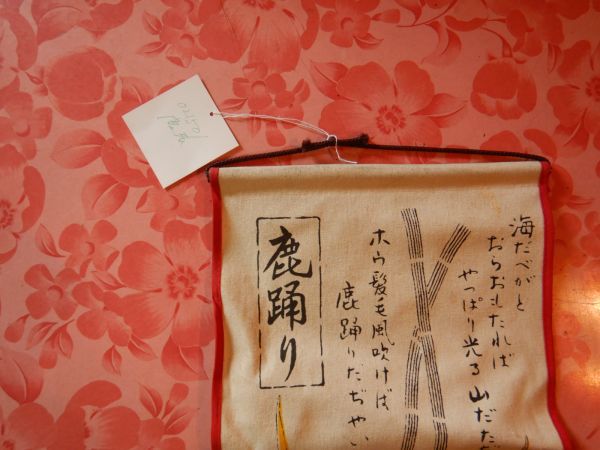 海だべがと
おらおもたれば
やっぱり光る山だたぢ
ホウ
髪毛風吹けば
鹿踊りだぢゃい
鹿踊り